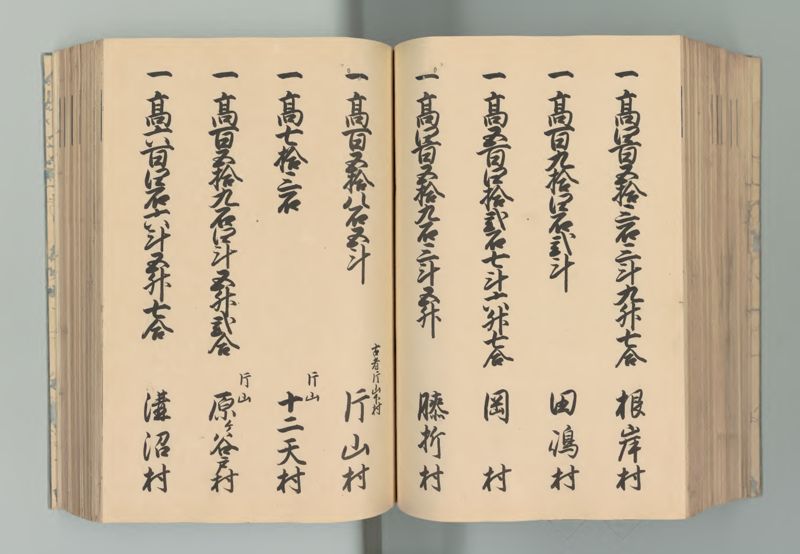 一 高四百五拾三石三斗九升七合 根岸村
一 高百九拾四石弐斗 田嶋村
一 高五百四拾弐石七斗六升七合 岡村
一 高四百五拾九石三斗五升 膝折村
一 高百五拾八石五斗 古者片山下村 片山村
一 高七拾三石 片山 十二天村
一 高百五拾九石四斗五升弐合 片山 原ヶ谷戸村
一 高六百四石六斗五升七合 溝沼村